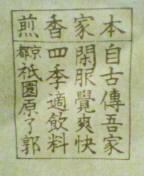 本家香煎
自古傳吾家
閑服覺爽快
四季適飲料
京都祇園原了郭